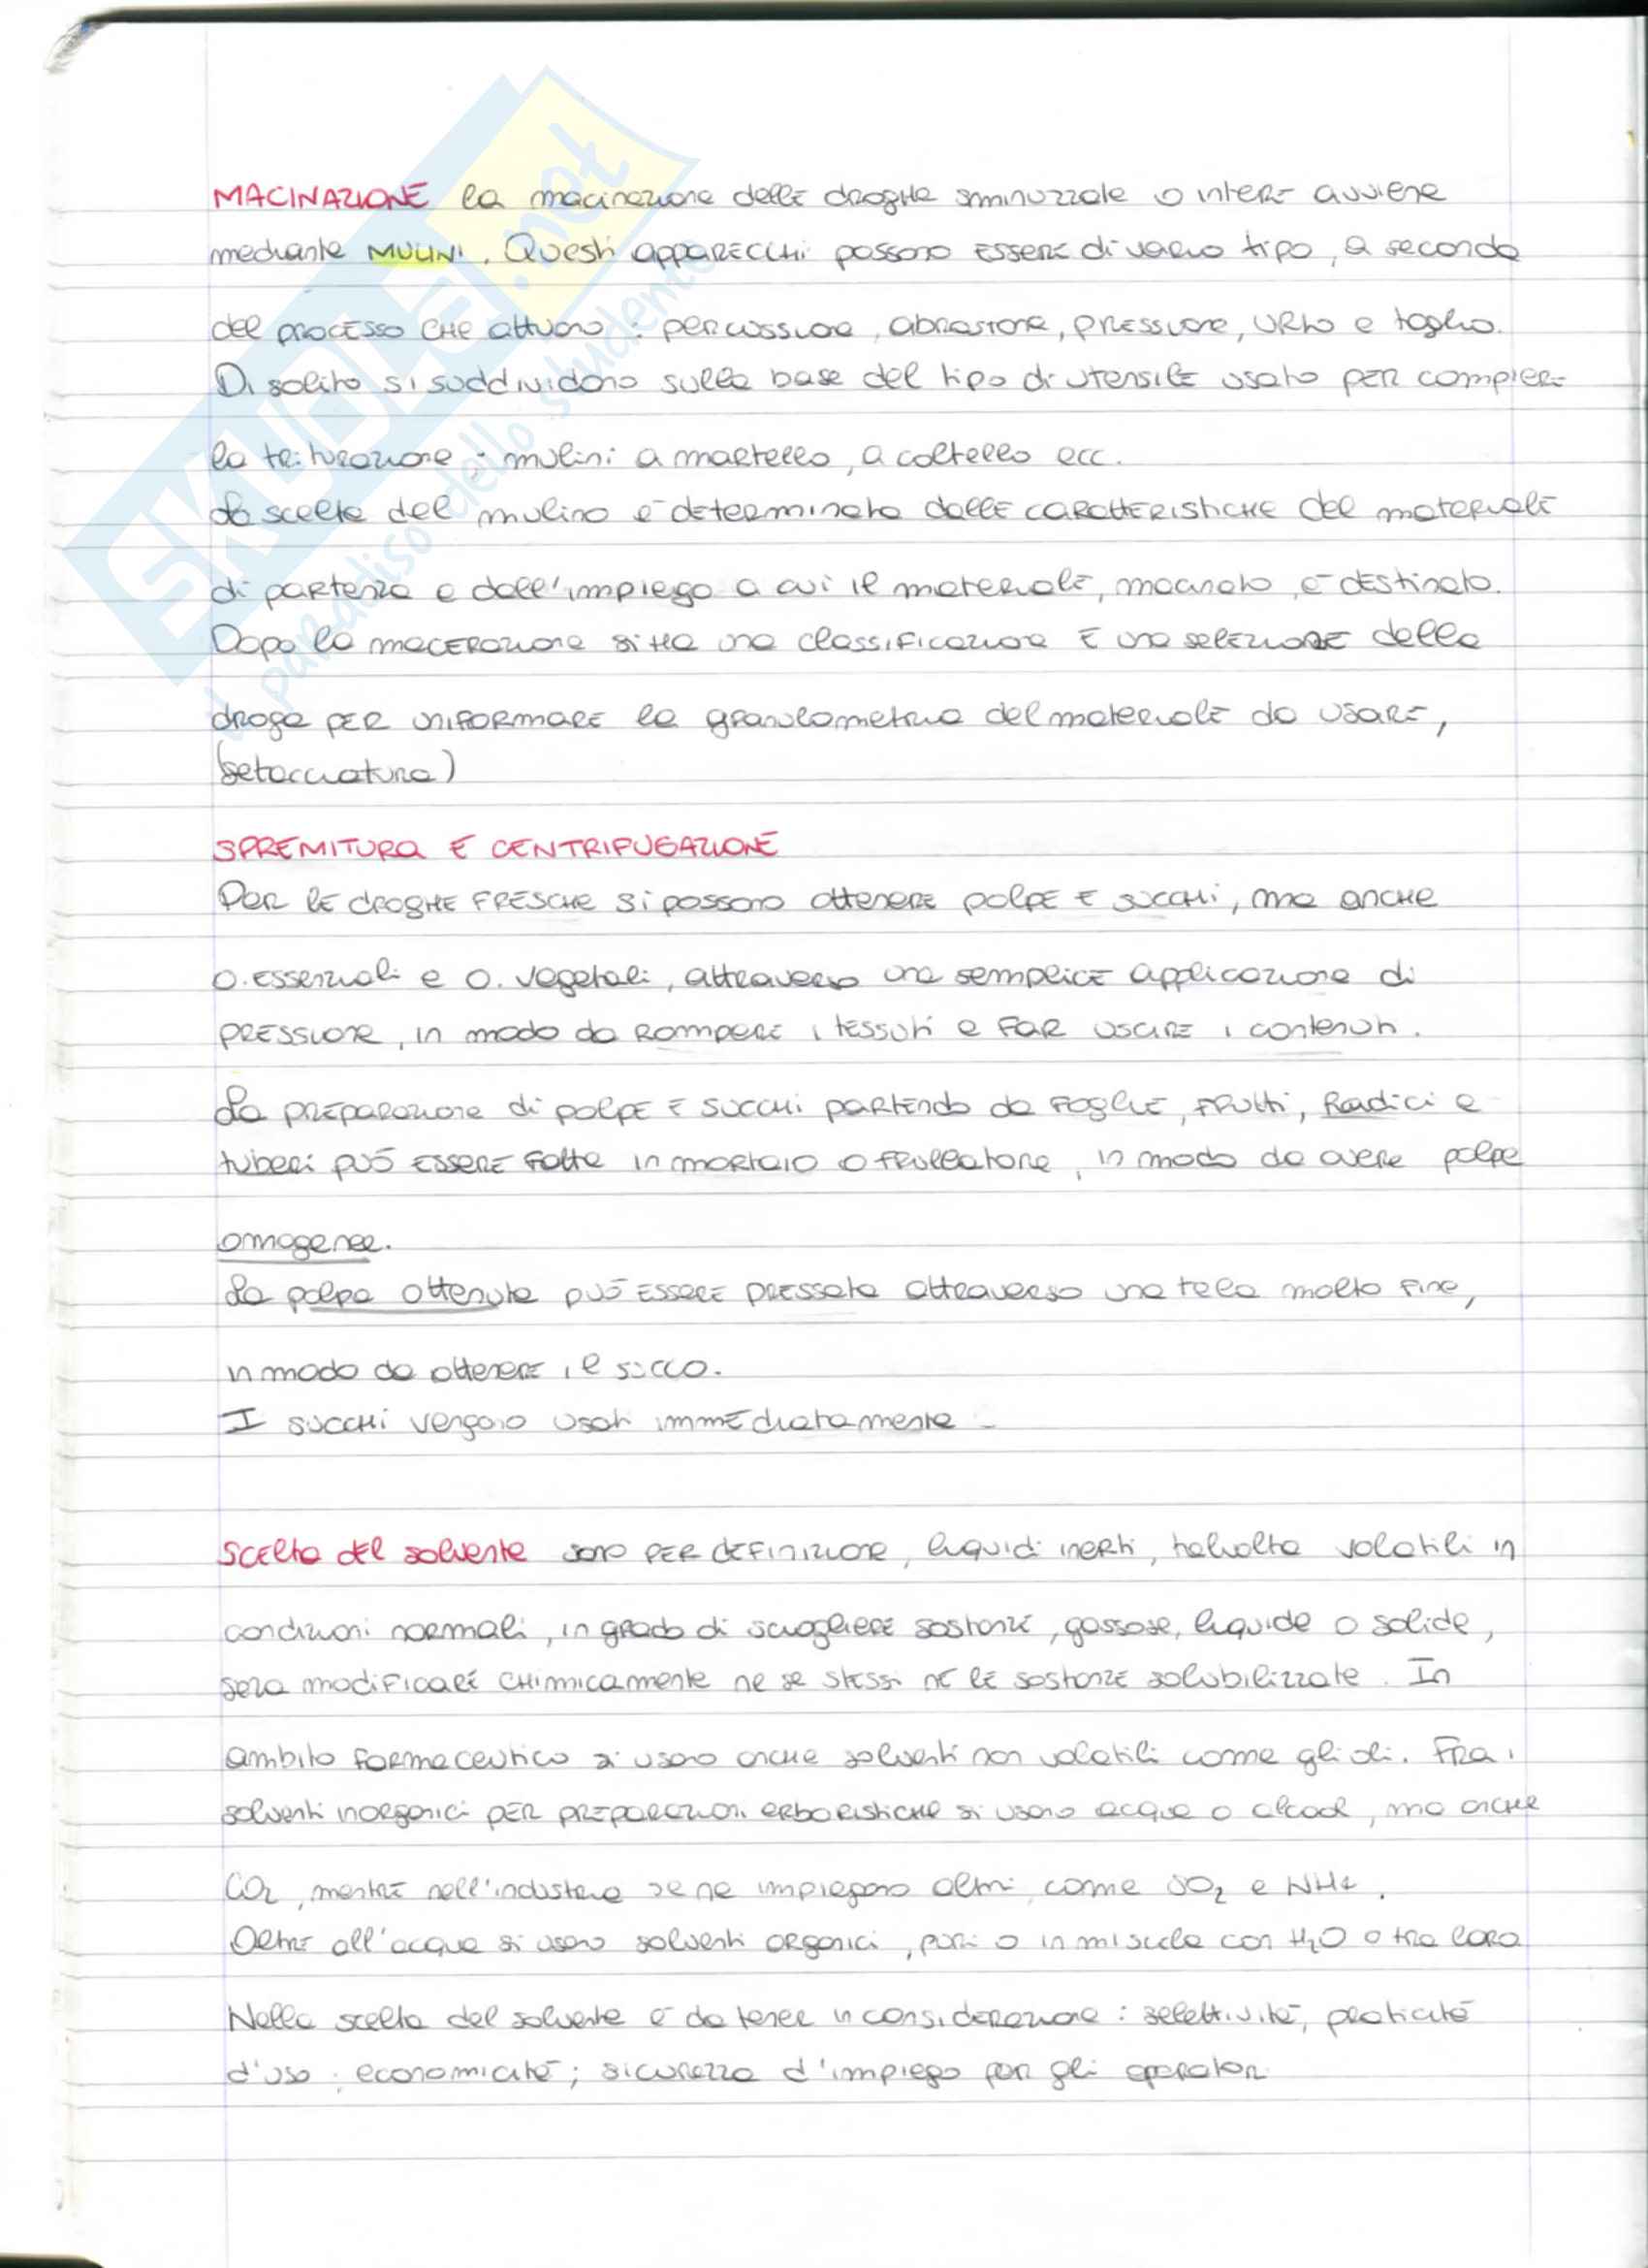 MACINAZIONE la macinazione delle droghe sminuzzate o intere avviene
mediante MULINI. Questi apparecchi possono essere di vario tipo, a seconda
del processo che attuano: percussione, abrasione, pressione, urto e taglio.
Di solito si suddividono sulla base del tipo di utensile usato per compiere
la triturazione: mulini a martello, a coltello ecc.
La scelta del mulino è determinata dalle caratteristiche del materiale
di partenza e dall'impiego a cui il materiale, macinato, è destinato.
Dopo la macerazione si ha una classificazione e una selezione della
droga per uniformare la granulometria del materiale da usare,
(setacciatura)
SPREMITURA E CENTRIFUGAZIONE
Per le droghe fresche si possono ottenere polpe e succhi, ma anche
o. essenziali e o. vegetali, attraverso una semplice applicazione di
pressione, in modo da rompere i tessuti e far uscire i contenuti.
La preparazione di polpe e succhi partendo da foglie, frutti, radici e
tuberi può essere fatta in mortaio o frullatore, in modo da avere polpe
omogenee.
La polpa ottenuta può essere pressata attraverso una tela molto fine,
in modo da ottenere il succo.
I succhi vengono usati immediatamente -
Scelta del solvente sono per definizione, liquidi inerti, talvolta volatili in
condizioni normali, in grado di sciogliere sostanze, gassose, liquide o solide,
senza modificare chimicamente ne se stessi né le sostanze solubilizzate. In
ambito farmaceutico si usano anche solventi non volatili come gli oli. Fra i
solventi inorganici per preparazioni erboristiche si usano acqua o alcool, ma anche
CO2, mentre nell'industria se ne impiegano altri come SO2 e NH4.
Oltre all'acqua si usano solventi organici, puri o in miscela con H2O o tra loro
Nella scelta del solvente è da tener in considerazione: selettività, praticità
d'uso; economicità; sicurezza d'impiego per gli operatori
SKUOLA.net
il paradiso dello studente